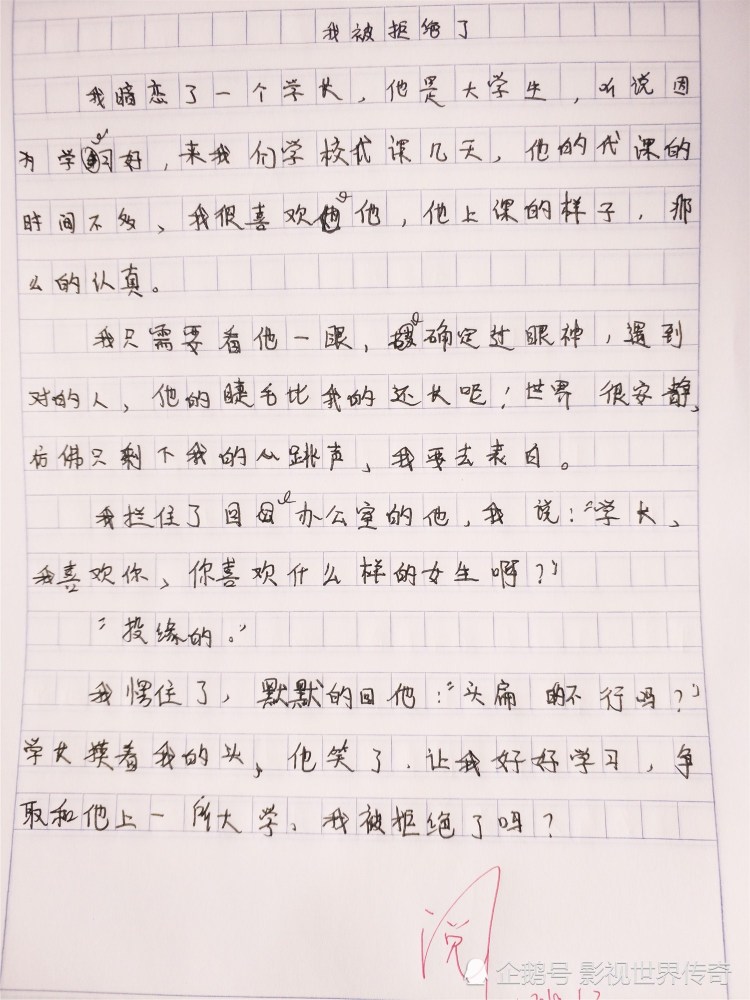 我被拒绝了
我暗恋了一个学长，他是大学生，听说因
为学习好，来我们学校代课几天，他的代课的
时间不多、我很喜欢他，他上课的样子，那
么的认真。
我只需要看他一眼，确定过眼神，遇到
对的人，他的睫毛比我的还长呢！世界很安静，
仿佛只剩下我的心跳声、我要去表白。
我拦住了回办公室的他，我说：“学长，
我喜欢你、你喜欢什么样的女生啊？”
“投缘的。”
我愣住了，默默的回他：“头扁的不行吗？”
学长摸着我的头，他笑了．让我好好学习，争
取和他上一所大学、我被拒绝了吗？
阅
企鹅号 影视世界传奇